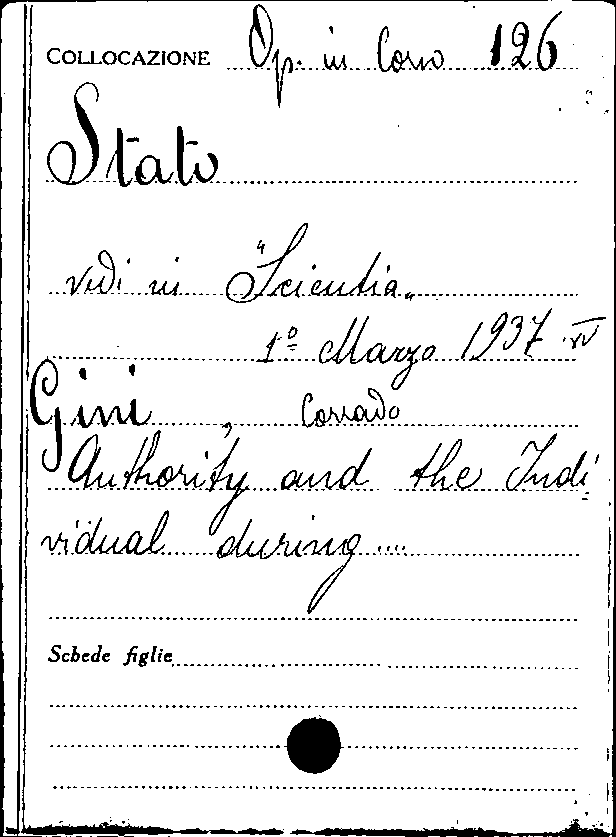 COLLOCAZIONE Op. in Corso 126
Stato
vedi in "Scientia„
1º Marzo 1937 XV
Gini, Corrado
Authority and the Indi
vidual during....
Schede figlie